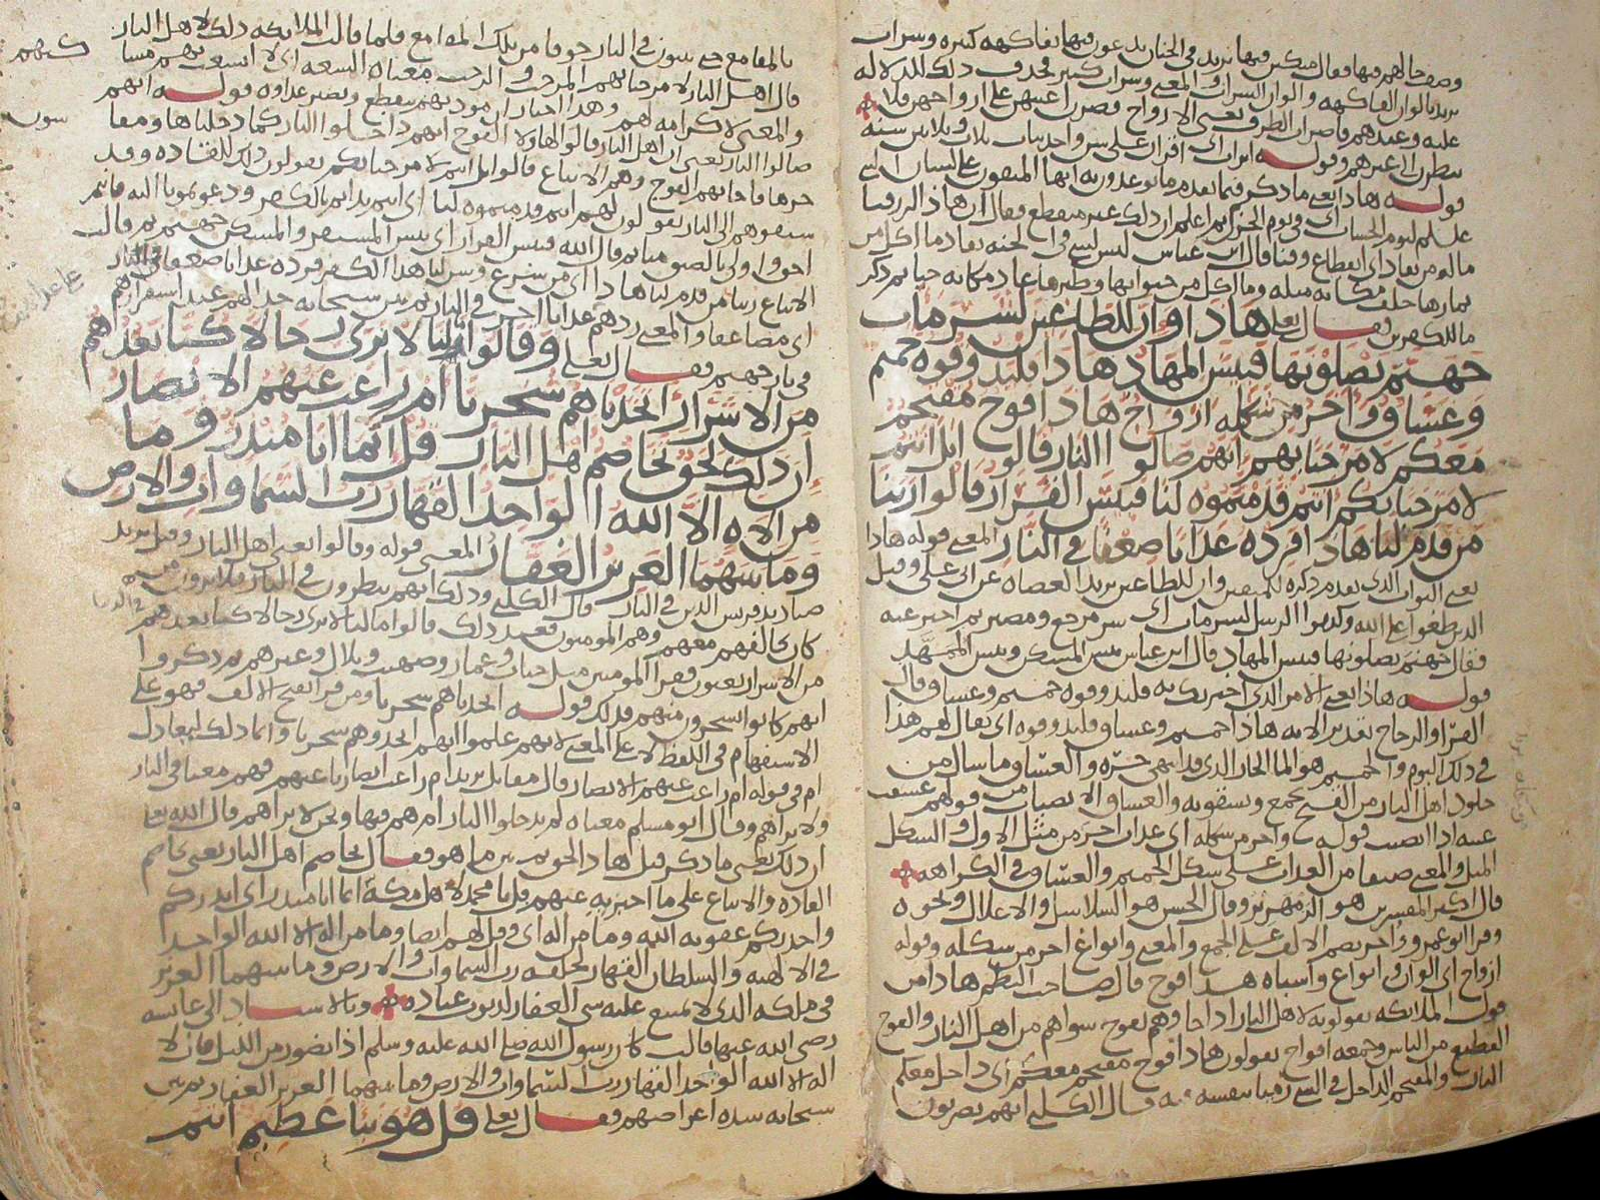 وصف حالهم فيها فقال متكين فيها يريد في الجنان يدعون فيها بفاكهة كثيرة وشراب
يريد بالوان الفاكهة والوان الشراب والمعنى وشراب كثير فحذف ذلك لدلاله
عليه وعندهم قاصرات الطرف يعني الازواج قصرن اعينهن على ازواجهن فلا
ينظرن الى غيرهم وقوله اتراب اي اقران على سن واحد بنات ثلاث وثلاثين سنه
قوله هاذا يعني ما ذكر فيما تقدم ما توعدون به ايها المتقون على لسان النبي
عليه السلم ليوم الحساب اي في يوم الجزا ثم اعلم ان ذلك غير منقطع فقال ان هاذا لرزقنا
ما له من نفاد اي انقطاع وفنا قال ابن عباس ليس لشي في الجنه نفاد ما اكل من
ثمارها خلف مكانه مثله وما اكل من حيوانها وطيرها عاد مكانه حيا ثم ذكر
ما للكافرين فقال تعلى هاذا وان للطاغين لشر مآب
جهنم يصلونها فبيس المهاد هاذا فليذوقوه حميم
وغساق وواخر من شكله ازواج هاذا فوج مقتحم
معكم لا مرحبا بهم انهم صالوا النار قالوا بل انتم
لا مرحبا بكم انتم قدمتموه لنا فبيس القرار قالوا ربنا
من قدم لنا هاذا فزده عذابا ضعفا في النار المعنى قوله هاذا
يعني الثواب الذي تقدم ذكره للمتقين وان للطاغين يريد العصاه عن ابي علي وقيل
الذين طغوا على الله وكذبوا الرسل لشر مآب اي شر مرجع ومصير ثم اخبر عنه
فقال جهنم يصلونها فبيس المهاد قال ابن عباس بيس المسكن وبيس الممهد
قوله هاذا يعني الامر الذي اخبرتك به فليذوقوه حميم وغساق قال
الفرا والزجاج تقدير الايه هاذا حميم وغساق فليذوقوه اي يقال لهم هذا
في ذلك اليوم والحميم هو الما الحار الذي قد انتهى حره والغساق ما سال من
جلود اهل النار من القيح يجمع ويسقونه والغساق الانصباب من قولهم غسقت
عينه اذا انصبت قوله واخر من شكله اي عذاب اخر من مثل الاول والشكل
المثل والمعنى صنفا من العذاب على شكل الحميم والغساق في الكراهه
قال اكثر المفسرين هو الزمهرير وقال الحسن هو السلاسل والاغلال ونحوه
وقرا ابو عمرو واخر بضم الالف على الجمع والمعنى وانواع اخر من شكله وقوله
ازواج اي الوان وانواع واشباه هذا فوج قال صاحب النظم هاذا من
قول الملائكه يقولونه لاهل النار اذا جاوهم بفوج سواهم من اهل النار والفوج
القطيع من الناس وجمعه افواج يقولون هاذا فوج مقتحم معكم اي داخل معكم
النار والمقتحم الداخل في الشي رميا بنفسه فيه قال الكلبي انهم يضربون
بالمقامع حتى في النار خوفا من تلك المقامع فلما قالت الملائكه ذلك لاهل النار
قال اهل النار لا مرحبا بهم المرحب والرحب معناه السعه اي لا اتسعت بهم
والمعنى لا كرامه لهم وهذا اخبار ان مودتهم تنقطع وتصير عداوه قوله انهم
صالوا النار يعني ان اهل النار قالوا لهاولا الفوج انهم داخلوا النار كما دخلناها
حرها فاجابهم الفوج وهم الاتباع قالوا بل انتم لا مرحبا بكم يقولون ذلك للقاده وقد
سبقوهم الى النار يقولون لهم انتم قدمتموه لنا اي انتم بداتم بالكفر ودعوتمونا اليه فانتم
احق واولى منا ثم قال الله فبيس القرار اي بيس المستقر والمسكن جهنم ثم قالت
الاتباع ربنا من قدم لنا هاذا اي من شرع وسن لنا هذا الكفر فزده عذابا ضعفا في النار
اي مضاعفا والمعنى زدهم عذابا اخر في النار ثم بين سبحانه حالهم عند استقرارهم
في نار جهنم فقال تعلى وقالوا ما لنا لا نرى رجالا كنا نعدهم
من الاشرار اتخذناهم سخريا ام زاغت عنهم الابصار
ان ذلك لحق تخاصم اهل النار قل انما انا منذر وما
من الاه الا الله الواحد القهار رب السماوات والارض
وما بينهما العزيز الغفار المعنى قوله وقالوا يعني اهل النار وقيل يريد
صناديد قريش الذين في النار قال الكلبي وذلك انهم ينظرون في النار فلا يرون من
كان يخالفهم معهم وهم المومنون فعند ذلك قالوا ما لنا لا نرى رجالا كنا نعدهم
من الاشرار يعنون فقرا المومنين مثل خباب وعمار وصهيب وبلال وغيرهم ثم ذكروا
انهم كانوا يسخرون منهم فذلك قوله اتخذناهم سخريا ومن قرا بفتح الالف فهو على
الاستفهام في اللفظ لا على المعنى لانهم علموا انهم اتخذوهم سخريا وانما ذلك ليعادل
ام في قوله ام زاغت عنهم الابصار قال مقاتل يريد ام زاغت ابصارنا عنهم فهم معنا في النار
ولا نراهم وقال ابو مسلم معناه لم يدخلوا النار ام هم فيها ونحن لا نراهم قال الله تعلى
ان ذلك يعني ما ذكر قبل هاذا لحق ثم بين ما هو فقال تخاصم اهل النار يعني تخاصم
القاده والاتباع على ما اخبر به عنهم قل يا محمد لاهل مكة انما انا منذر اي انذركم
واحذركم عقوبه الله وما من اله اي وقل لهم ايضا وما من اله الا الله الواحد
في الالهيه والسلطان القهار لخلقه رب السماوات والارض وما بينهما العزيز
في ملكه الذي لا يمتنع عليه شي الغفار لذنوب عباده وبالاسناد الى عائشه
رضى الله عنها قالت كان رسول الله صلى الله عليه وسلم اذا تضور من الليل قال لا
اله الا الله الواحد القهار رب السماوات والارض وما بينهما العزيز الغفار ثم بين
سبحانه شده اعراضهم فقال تعلى قل هو نبا عظيم انتم